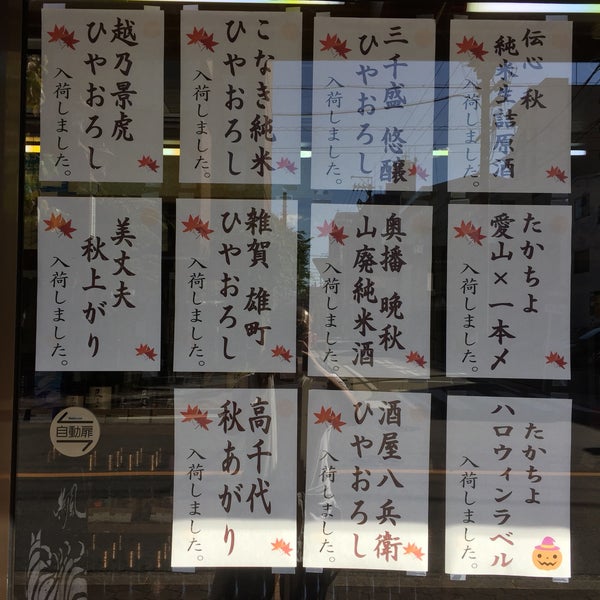 伝心 秋
純米生詰原酒
入荷しました。
三千盛 悠醸
ひやおろし
入荷しました。
こなき純米
ひやおろし
入荷しました。
越乃景虎
ひやおろし
入荷しました。
たかちよ
愛山×一本〆
入荷しました。
奥播 晩秋
山廃純米酒
入荷しました。
雑賀 雄町
ひやおろし
入荷しました。
美丈夫
秋上がり
入荷しました。
たかちよ
ハロウィンラベル
入荷しました。
酒屋八兵衛
ひやおろし
入荷しました。
高千代
秋あがり
入荷しました。
自動扉